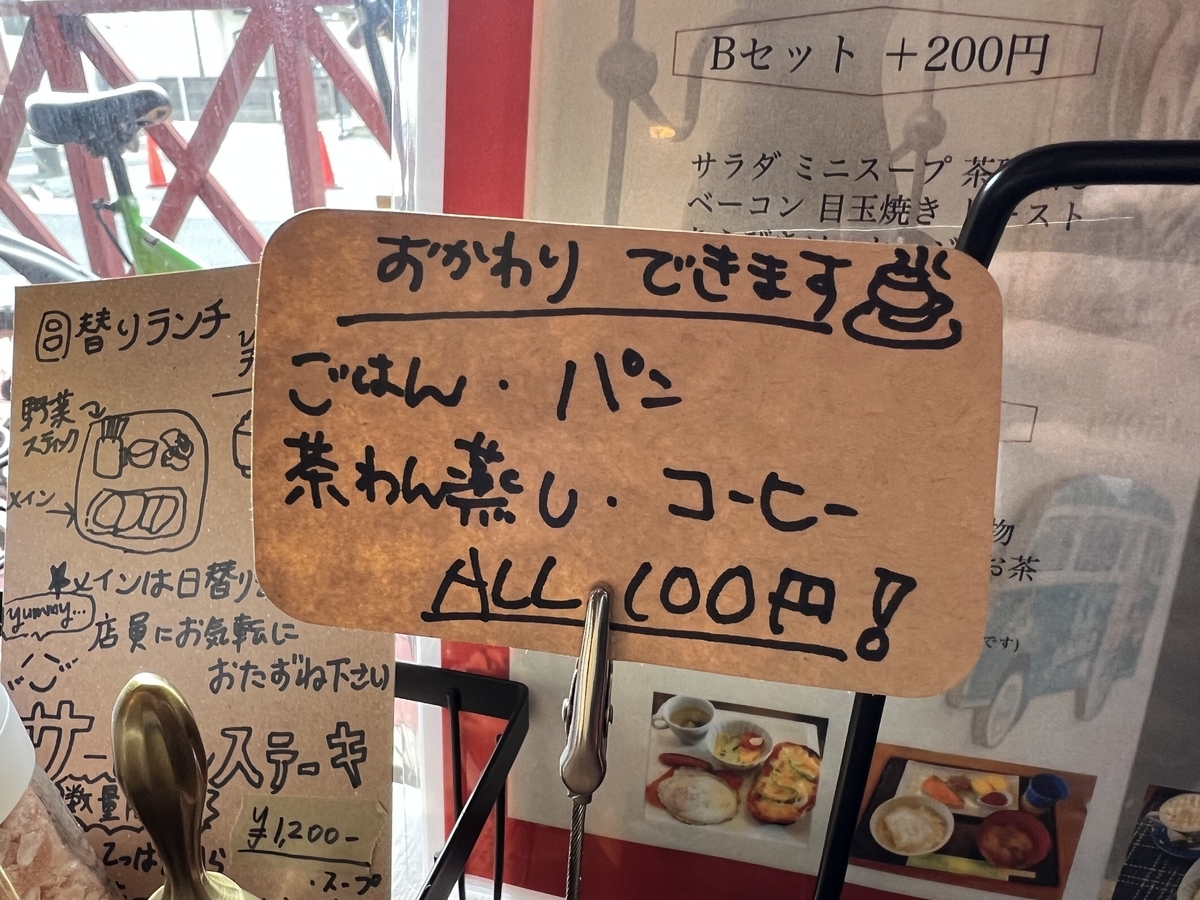 Bセット +200円
サラダ ミニスープ 茶
ベーコン 目玉焼き トースト
おかわり できます
ごはん・パン
茶わん蒸し・コーヒー
ALL 100円!
日替りランチ
野菜
スティック
メイン
※メインは日替り
yummy...
店員にお気軽に
おたずね下さい
ステーキ
数量
¥1,200-
・スープ
物
お茶
です)